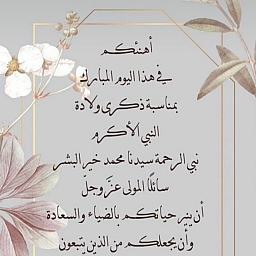 أهنئكم
في هذا اليوم المبارك
بمناسبة ذكرى ولادة
النبي الأكرم
نبي الرحمة سيدنا محمد خير البشر
سائلًا المولى عزّ وجلّ
أن ينير حياتكم بالضياء والسعادة
وأن يجعلكم من الذين يتبعون